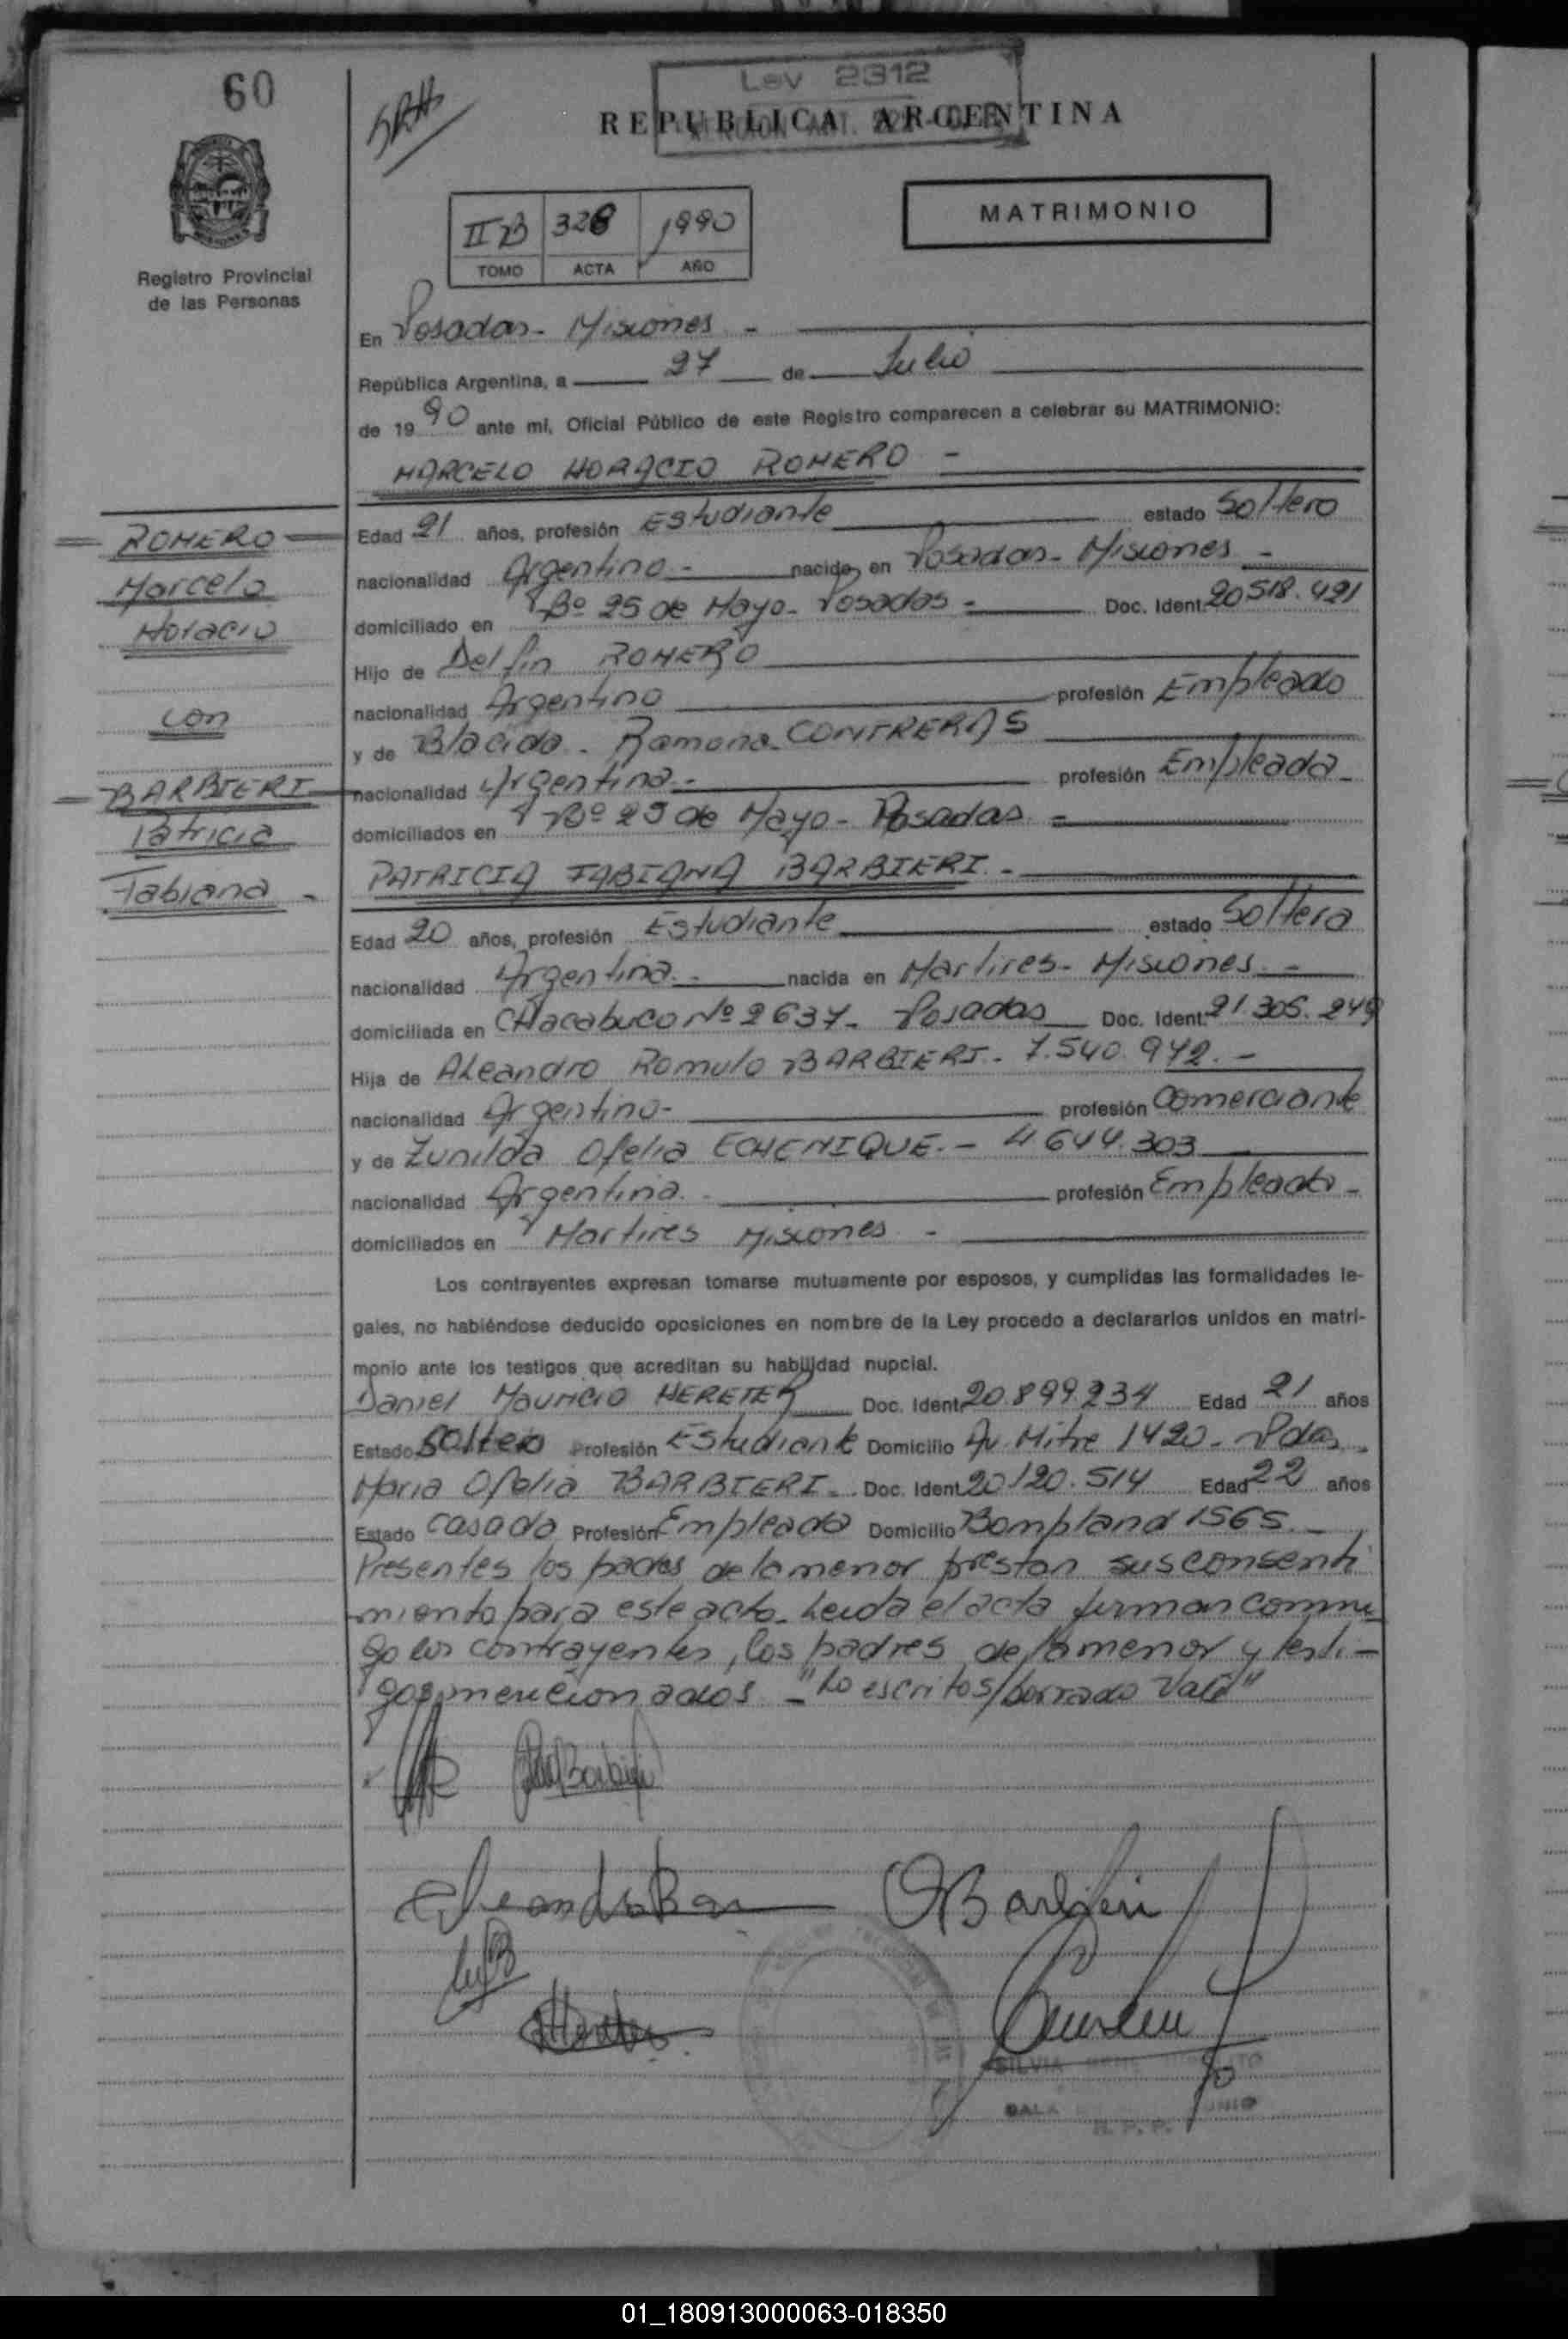 60
Ley 2312
REPUBLICA ARGENTINA
MATRIMONIO
IIB 328 1990
TOMO ACTA AÑO
Registro Provincial
de las Personas
En Posadas - Misiones -
República Argentina, a 27 de Julio
de 1990 ante mi, Oficial Público de este Registro comparecen a celebrar su MATRIMONIO:
MARCELO HORACIO ROMERO -
ROMERO
Marcelo
Horacio
con
BARBIERI
Patricia
Fabiana -
Edad 21 años, profesión Estudiante estado Soltero
nacionalidad Argentino - nacido en Posadas - Misiones -
domiciliado en Bº 25 de Mayo - Posadas - Doc. Ident. 20518.421
Hijo de Delfin ROMERO
nacionalidad Argentino profesión Empleado
y de Blacida - Ramona CONTRERAS
nacionalidad Argentina - profesión Empleada -
domiciliados en Bº 25 de Mayo - Posadas -
PATRICIA FABIANA BARBIERI -
Edad 20 años, profesión Estudiante estado Soltera
nacionalidad Argentina - nacida en Martires - Misiones -
domiciliada en CHacabuco Nº 2637 - Posadas Doc. Ident. 21.305.249
Hija de ALeandro Romulo BARBIERI - 7.540.942. -
nacionalidad Argentino - profesión Comerciante
y de Zunilda Ofelia ECHENIQUE. - 4644.303
nacionalidad Argentina. - profesión Empleada -
domiciliados en Martires Misiones -
Los contrayentes expresan tomarse mutuamente por esposos, y cumplidas las formalidades le-
gales, no habiéndose deducido oposiciones en nombre de la Ley procedo a declararlos unidos en matri-
monio ante los testigos que acreditan su habilidad nupcial.
Daniel Mauricio HERETER Doc. Ident. 20.899.234 Edad 21 años
Estado Soltero Profesión Estudiante Domicilio Av. Mitre 1420 - Pdas.
Maria Ofelia BARBIERI - Doc. Ident. 20120.514 Edad 22 años
Estado Casada Profesión Empleada Domicilio Bompland 1565 -
Presentes los padres de la menor prestan sus consenti
miento para este acto - Leida el acta firman conmi
go los contrayentes, los padres de la menor y testi -
gos mencionados - "Lo escritos/borrado Vale"
SILVIA
R. P. P.
01_180913000063-018350